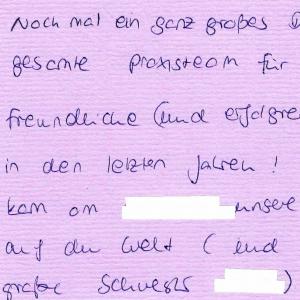 Noch mal ein ganz großes
gesamte Praxisteam für
freundliche (und erfolgre
in den letzten Jahren!
kam am unsere
auf die Welt (und
große Schwester )